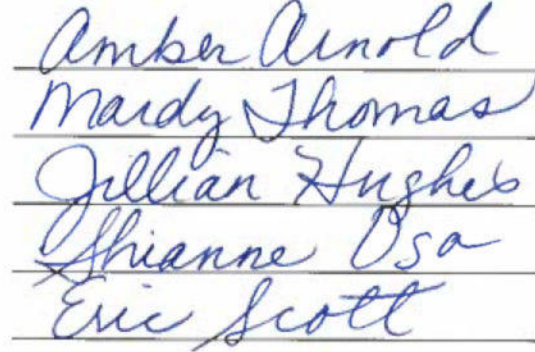 Amber Arnold
Mardy Thomas
Jillian Hughes
Shianne Osa
Eric Scott